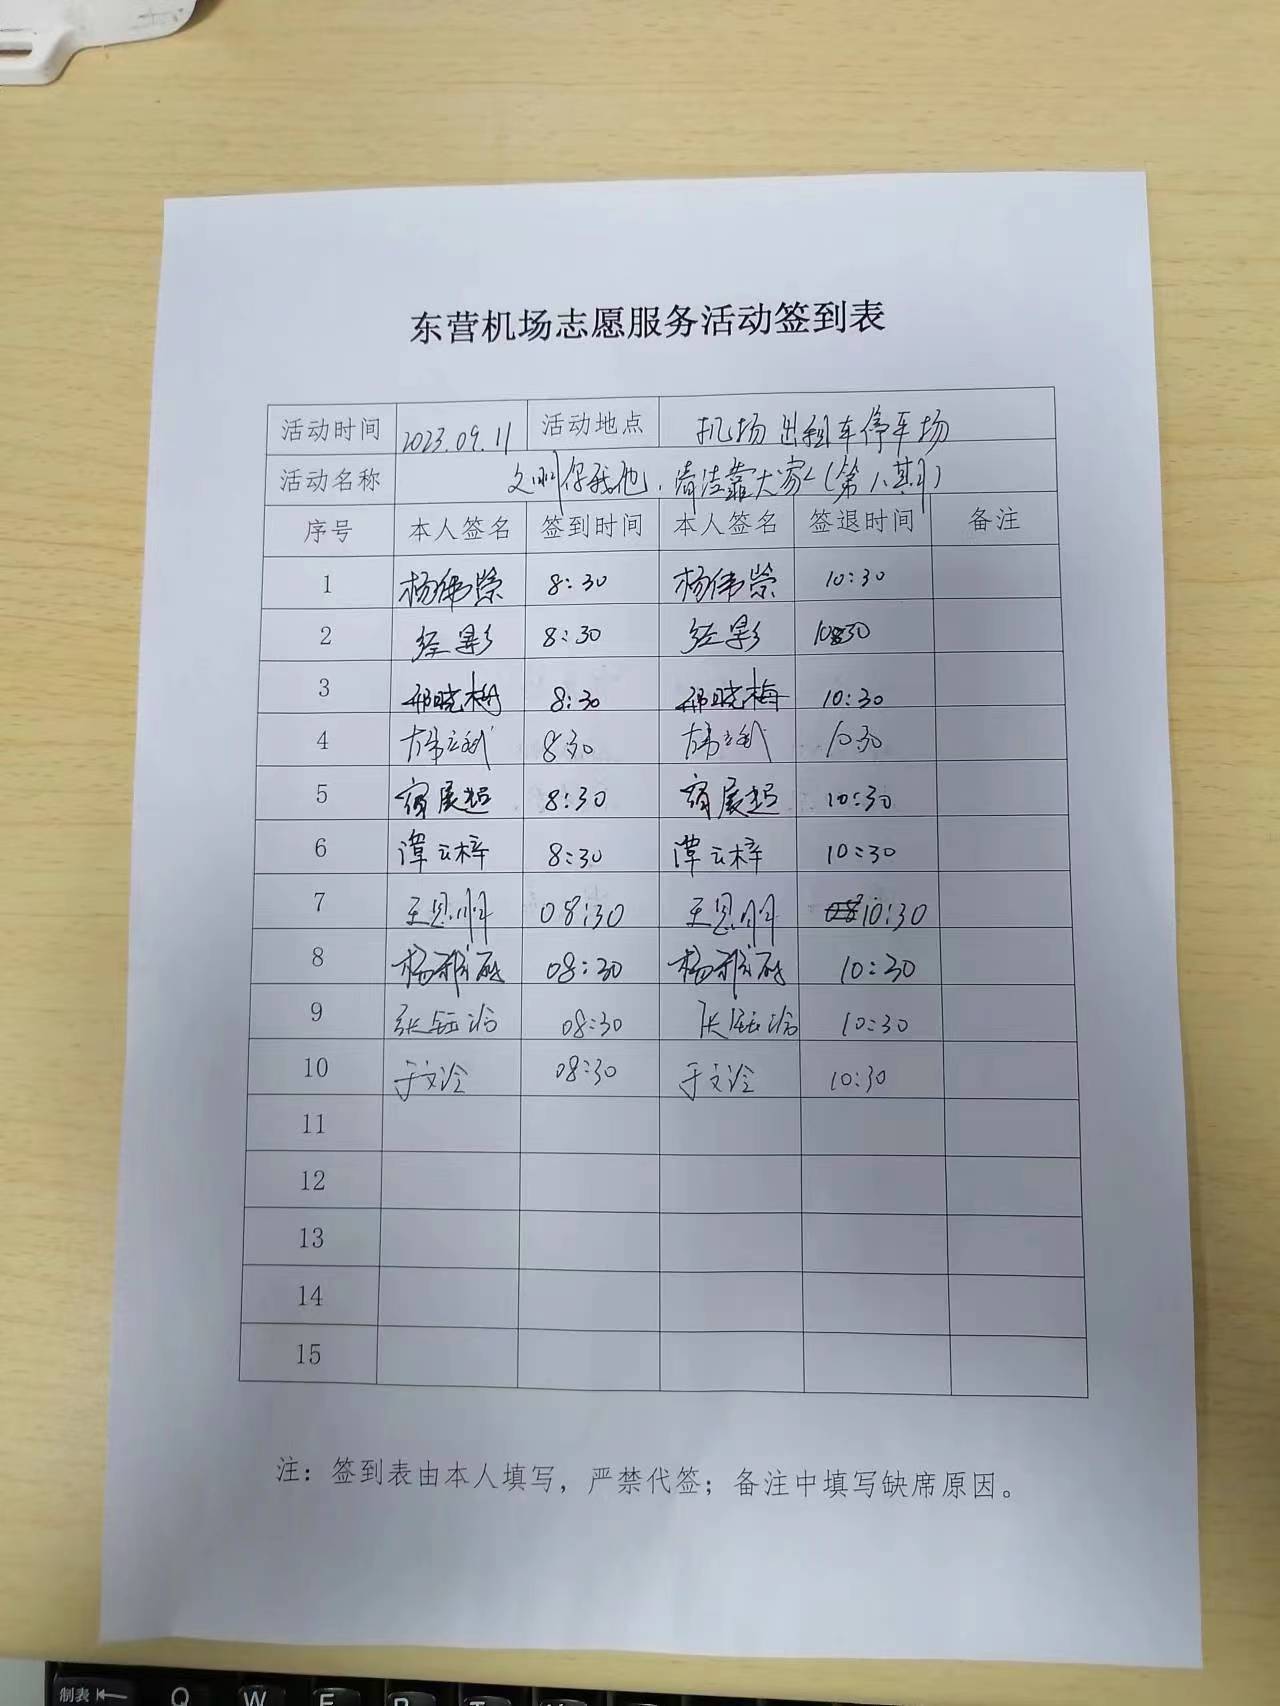 东营机场志愿服务活动签到表
活动时间 2023.09.11 活动地点 机场出租车停车场
活动名称 文明你我他，清洁靠大家（第八期）
序号 本人签名 签到时间 本人签名 签退时间 备注
1 杨伟荣 8:30 杨伟荣 10:30
2 8:30 10:30
3 邢晓梅 8:30 邢晓梅 10:30
4 8:30 10:30
5 宿展超 8:30 宿展超 10:30
6 谭云梓 8:30 谭云梓 10:30
7 08:30 10:30
8 08:30 10:30
9 08:30 10:30
10 于文泠 08:30 于文泠 10:30
11
12
13
14
15
注：签到表由本人填写，严禁代签；备注中填写缺席原因。
制表 Q W E R T